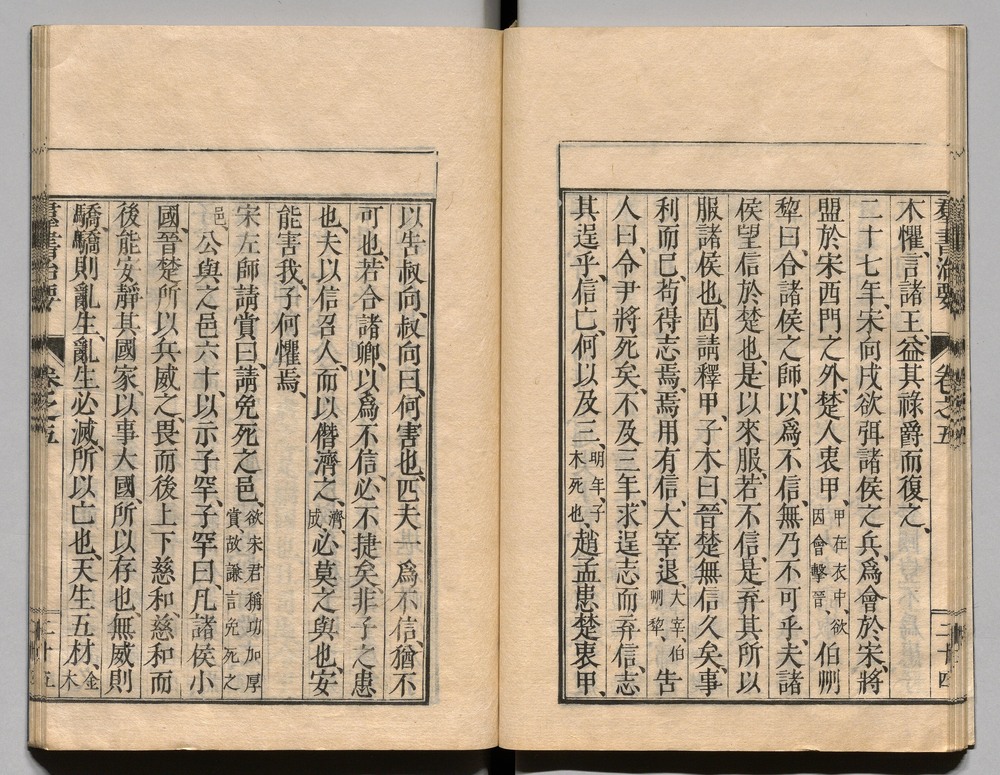 羣書治要 卷之五 二十四
木懼、言諸王、益其祿爵而復之、
二十七年、宋向戌欲弭諸侯之兵、爲會於宋、將
盟於宋西門之外、楚人衷甲、甲在衣中、欲因會擊晉、伯州
犂曰、合諸侯之師、以爲不信、無乃不可乎、夫諸
侯望信於楚也、是以來服、若不信、是弃其所以
服諸侯也、固請釋甲、子木曰、晉楚無信久矣、事
利而已、苟得志焉、焉用有信、大宰退、大宰、伯州犂、告
人曰、令尹將死矣、不及三年、求逞志而弃信、志
其逞乎、信亡、何以及三、明年、子木死也、趙孟患楚衷甲、
以告叔向、叔向曰、何害也、匹夫一爲不信、猶不
可也、若合諸卿、以爲不信、必不捷矣、非子之患
也、夫以信召人、而以僭濟之、濟、成、必莫之與也、安
能害我、子何懼焉、
宋左師請賞曰、請免死之邑、欲宋君稱功加厚賞、故謙言免死之
邑、公與之邑六十、以示子罕、子罕曰、凡諸侯小
國、晉楚所以兵威之、畏而後上下慈和、慈和而
後能安靜其國家、以事大國、所以存也、無威則
驕、驕則亂生、亂生必滅、所以亡也、天生五材、金木
羣書治要 卷之五 二十五